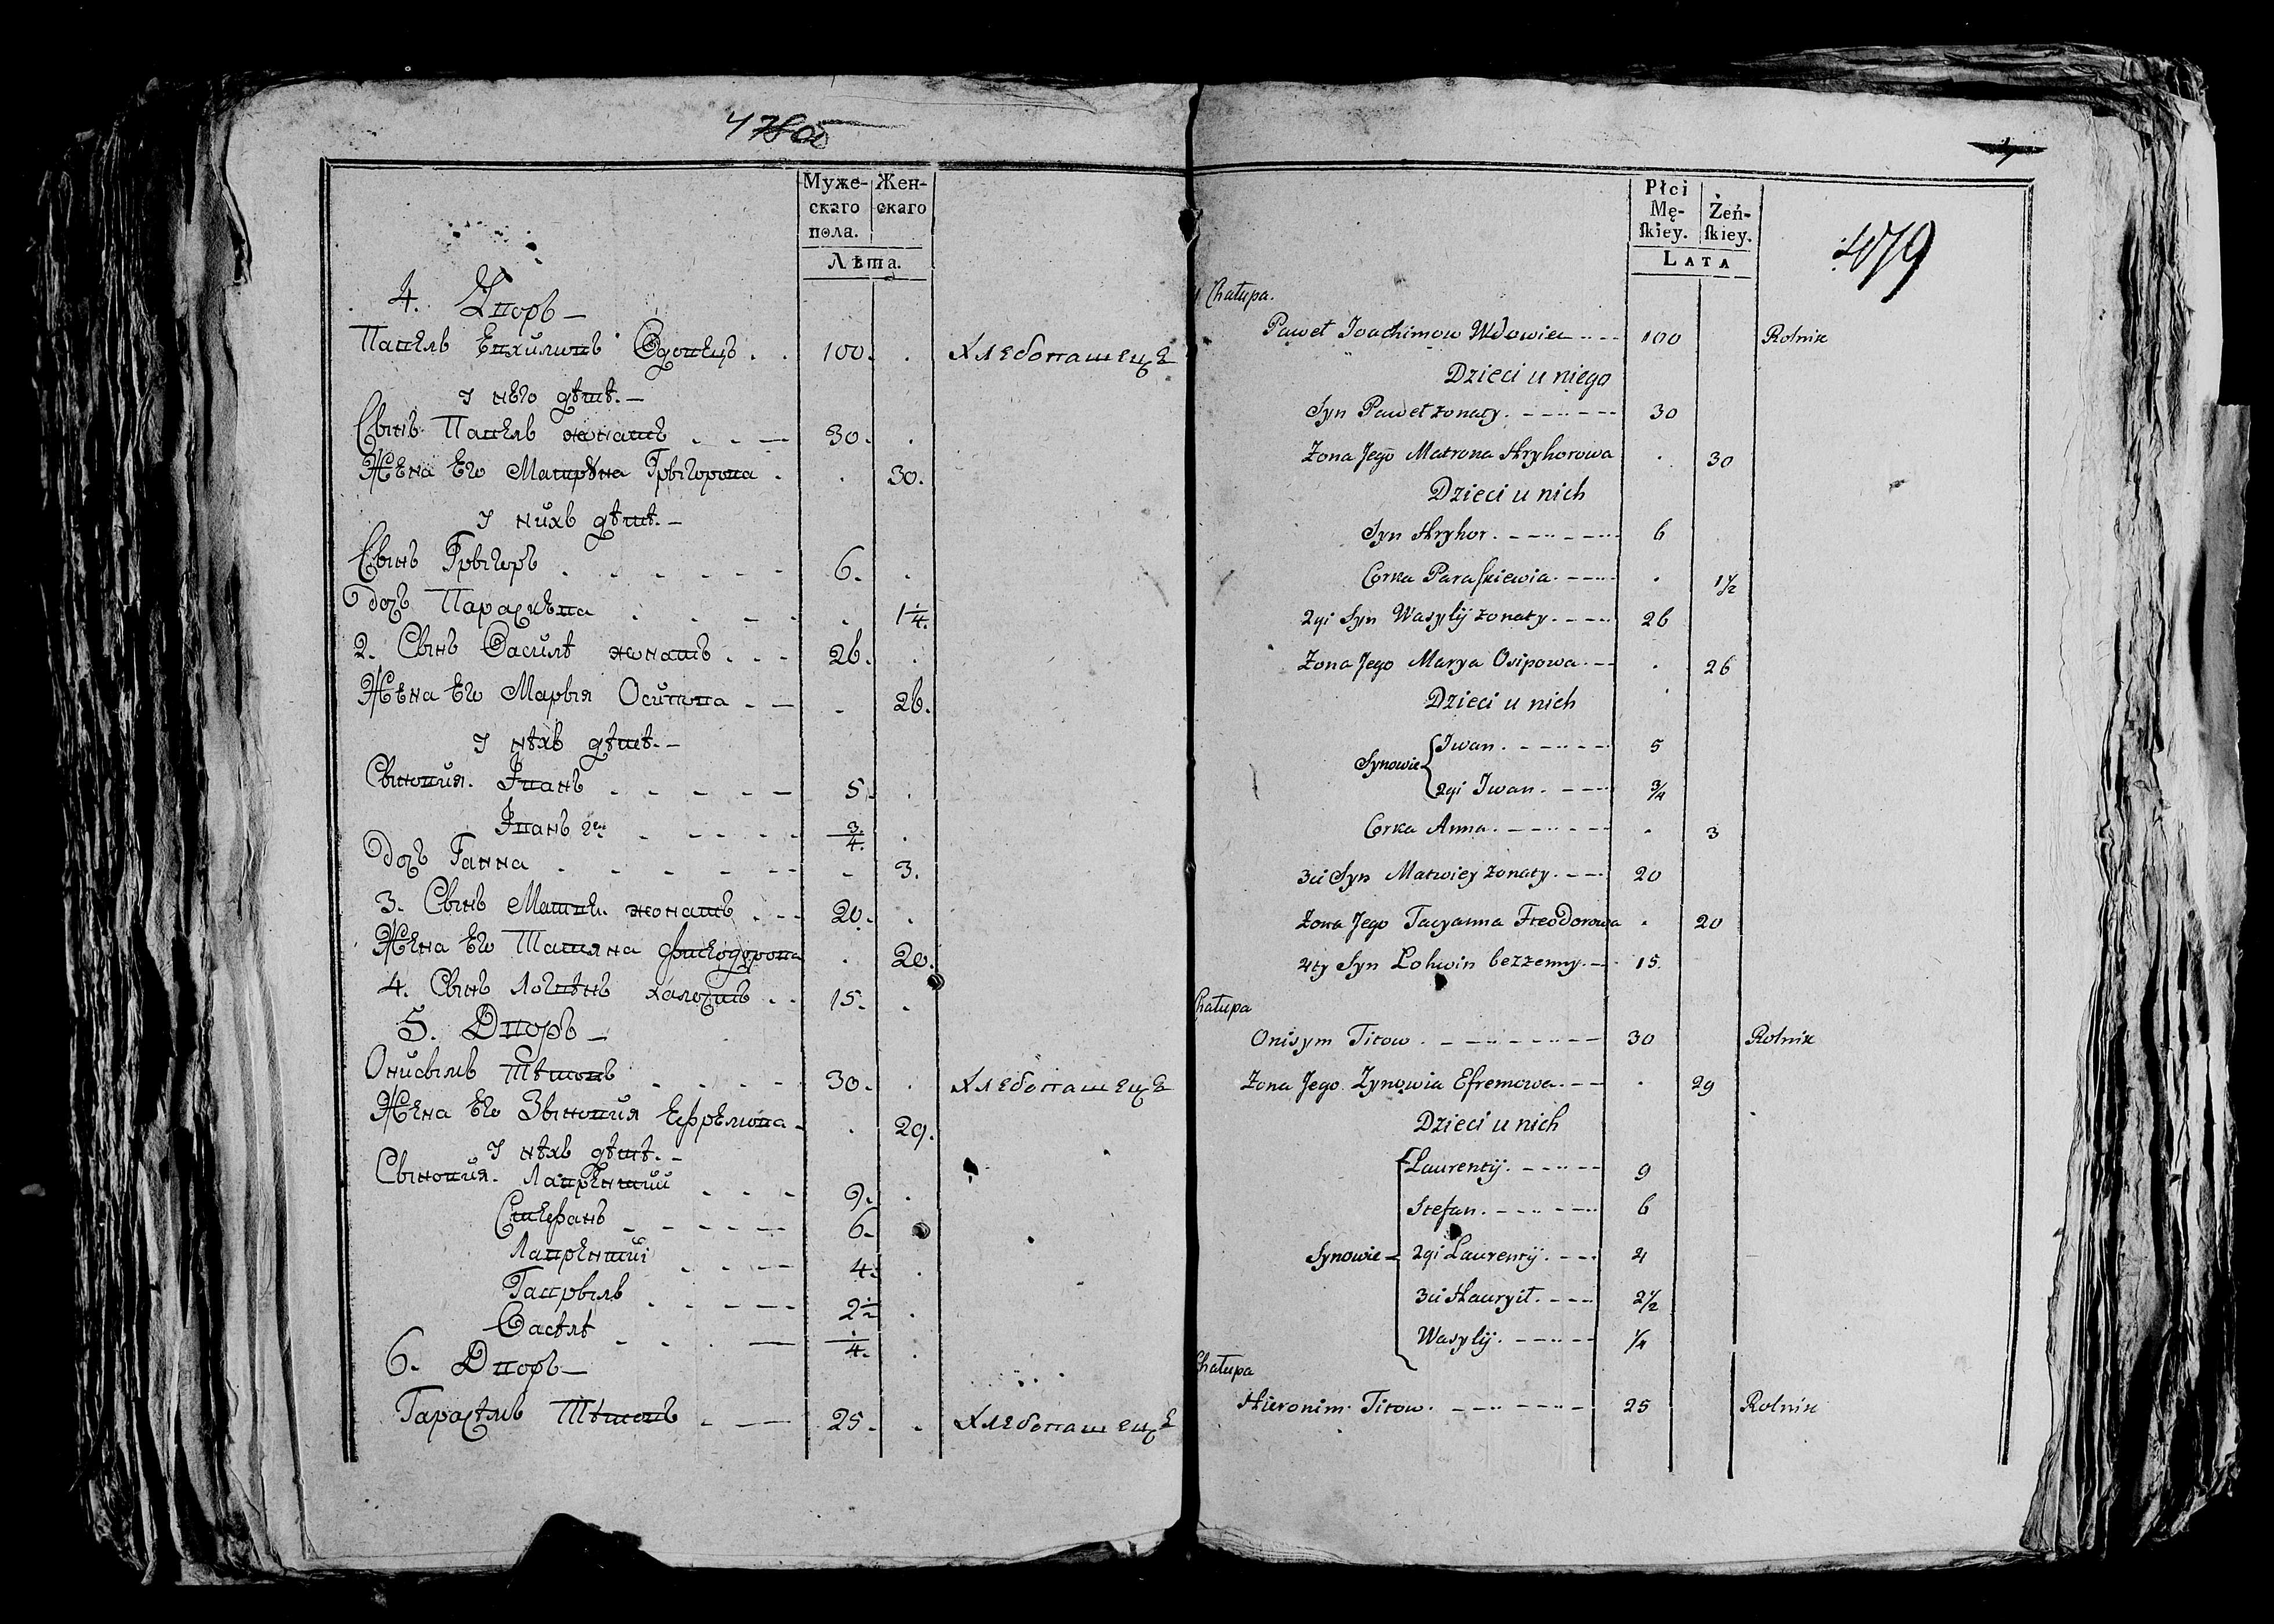 478об
Муже-
скаго
пола.
Жен-
скаго
Лѣта.
4. Дворъ —
Павелъ Евхимовъ Вдовецъ . . 100. . Хлебопашецъ
У него дѣтѣ. —
Сынъ Павелъ жонатъ . . — 30. .
Жена Его Матрѵна Грыгорова . . 30.
У нихъ дѣтѣ. —
Сынъ Грыгоръ . . . . . . 6. .
Дочь Параскева . . . . . 1 1/4.
2. Сынъ Василѣ жонатъ . . . 26. .
Жена Его Марыя Осипова . — . 26.
У нѣхъ дѣтѣ. —
Сыновия. Іванъ . . . . . 5. .
Іванъ 2й . . . . . 3/4. .
Дочь Ганна . . . . . . 3.
3. Сынъ Матвей жонатъ . . . 20. .
Жена Его Татяна Фиеодорова . 20.
4. Сынъ Логвѣнъ халостъ . . 15. .
5. Дворъ —
Онисымъ Тѣтовъ . . . . 30. . Хлебопашецъ
Жена Его Зыновия Ефремова . . 29.
У нѣхъ дѣтѣ. —
Сыновия. Лаврентий . . . 9. .
Стефанъ . . . . . . 6. .
Лавренти . . . . . 4. .
Гаврылъ . . . . . 2 1/2 .
Васѣлѣ . . . — 1/4. .
6. Дворъ —
Гарасѣмъ Тѣтовъ . — 25. . Хлебопашецъ
Płci
Mę-
ſkiey.
Żeń-
ſkiey.
LATA
479
Chałupa.
Paweł Joachimow Wdowiec . . . . 100 Rolnik
Dzieci u niego
Syn Paweł żonaty . . . . . . 30
Żona Jego Matrona Hryhorowa . 30
Dzieci u nich
Syn Hryhor . . . . . . . 6
Corka Paraſkiewia . . . . . . 1 1/2
2gi Syn Wasylij żonaty . . . . 26
Żona Jego Marya Osipowa . . . . 26
Dzieci u nich
Synowie
Iwan . . . . . . 5
2gi Iwan . . . . . 3/4
Corka Anna . . . . . . . 3
3ci Syn Matwiey żonaty . . . 20
Żona Jego Tacyanna Fteodorowa . 20
4ty Syn Lohwin bezżenny . . . 15.
Chałupa
Onisym Titow . . . . . . . . 30 Rolnik
Żona Jego Zynowia Efremowa . . . . 29
Dzieci u nich
Synowie
Laurentÿ . . . . . 9
Stefan . . . . . . 6
2gi Laurentÿ . . . . 4
3ci Hauryił . . . . 2 1/2
Wasylÿ . . . . . . 1/4
Chałupa
Hieronim Titow . . . . . . . 25 Rolnik